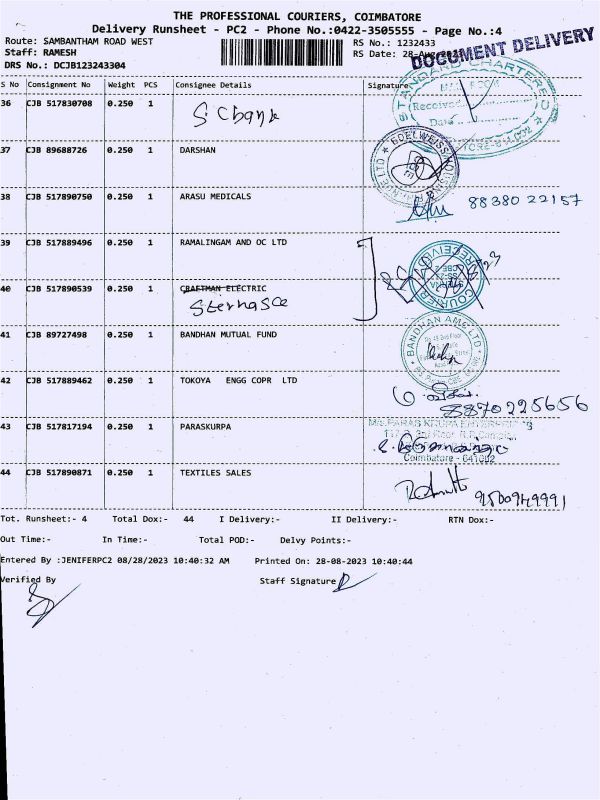 THE PROFESSIONAL COURIERS, COIMBATORE
Delivery Runsheet - PC2 - Phone No.:0422-3505555 - Page No.:4
Route: SAMBANTHAM ROAD WEST RS No.: 1232433
Staff: RAMESH RS Date: 28-Aug-2023
DRS No.: DCJB123243304
DOCUMENT DELIVERY
S No Consignment No Weight PCS Consignee Details Signature
36 CJB 517830708 0.250 1 S C bank
STANDARD CHARTERED
Received
Date
37 CJB 89688726 0.250 1 DARSHAN
EDELWEISS
38 CJB 517890750 0.250 1 ARASU MEDICALS 88380 22157
39 CJB 517889496 0.250 1 RAMALINGAM AND OC LTD
40 CJB 517890539 0.250 1 CRAFTMAN ELECTRIC
COURIER
41 CJB 89727498 0.250 1 BANDHAN MUTUAL FUND
BANDHAN AMC LTD
42 CJB 517889462 0.250 1 TOKOYA ENGG COPR LTD
8870225656
43 CJB 517817194 0.250 1 PARASKURPA
M/s.PARAS KRUPA ENTERPRISES
Coimbatore - 641002
44 CJB 517890871 0.250 1 TEXTILES SALES
9500949991
Tot. Runsheet:- 4 Total Dox:- 44 I Delivery:- II Delivery:- RTN Dox:-
Out Time:- In Time:- Total POD:- Delvy Points:-
Entered By :JENIFERPC2 08/28/2023 10:40:32 AM Printed On: 28-08-2023 10:40:44
Verified By Staff Signature